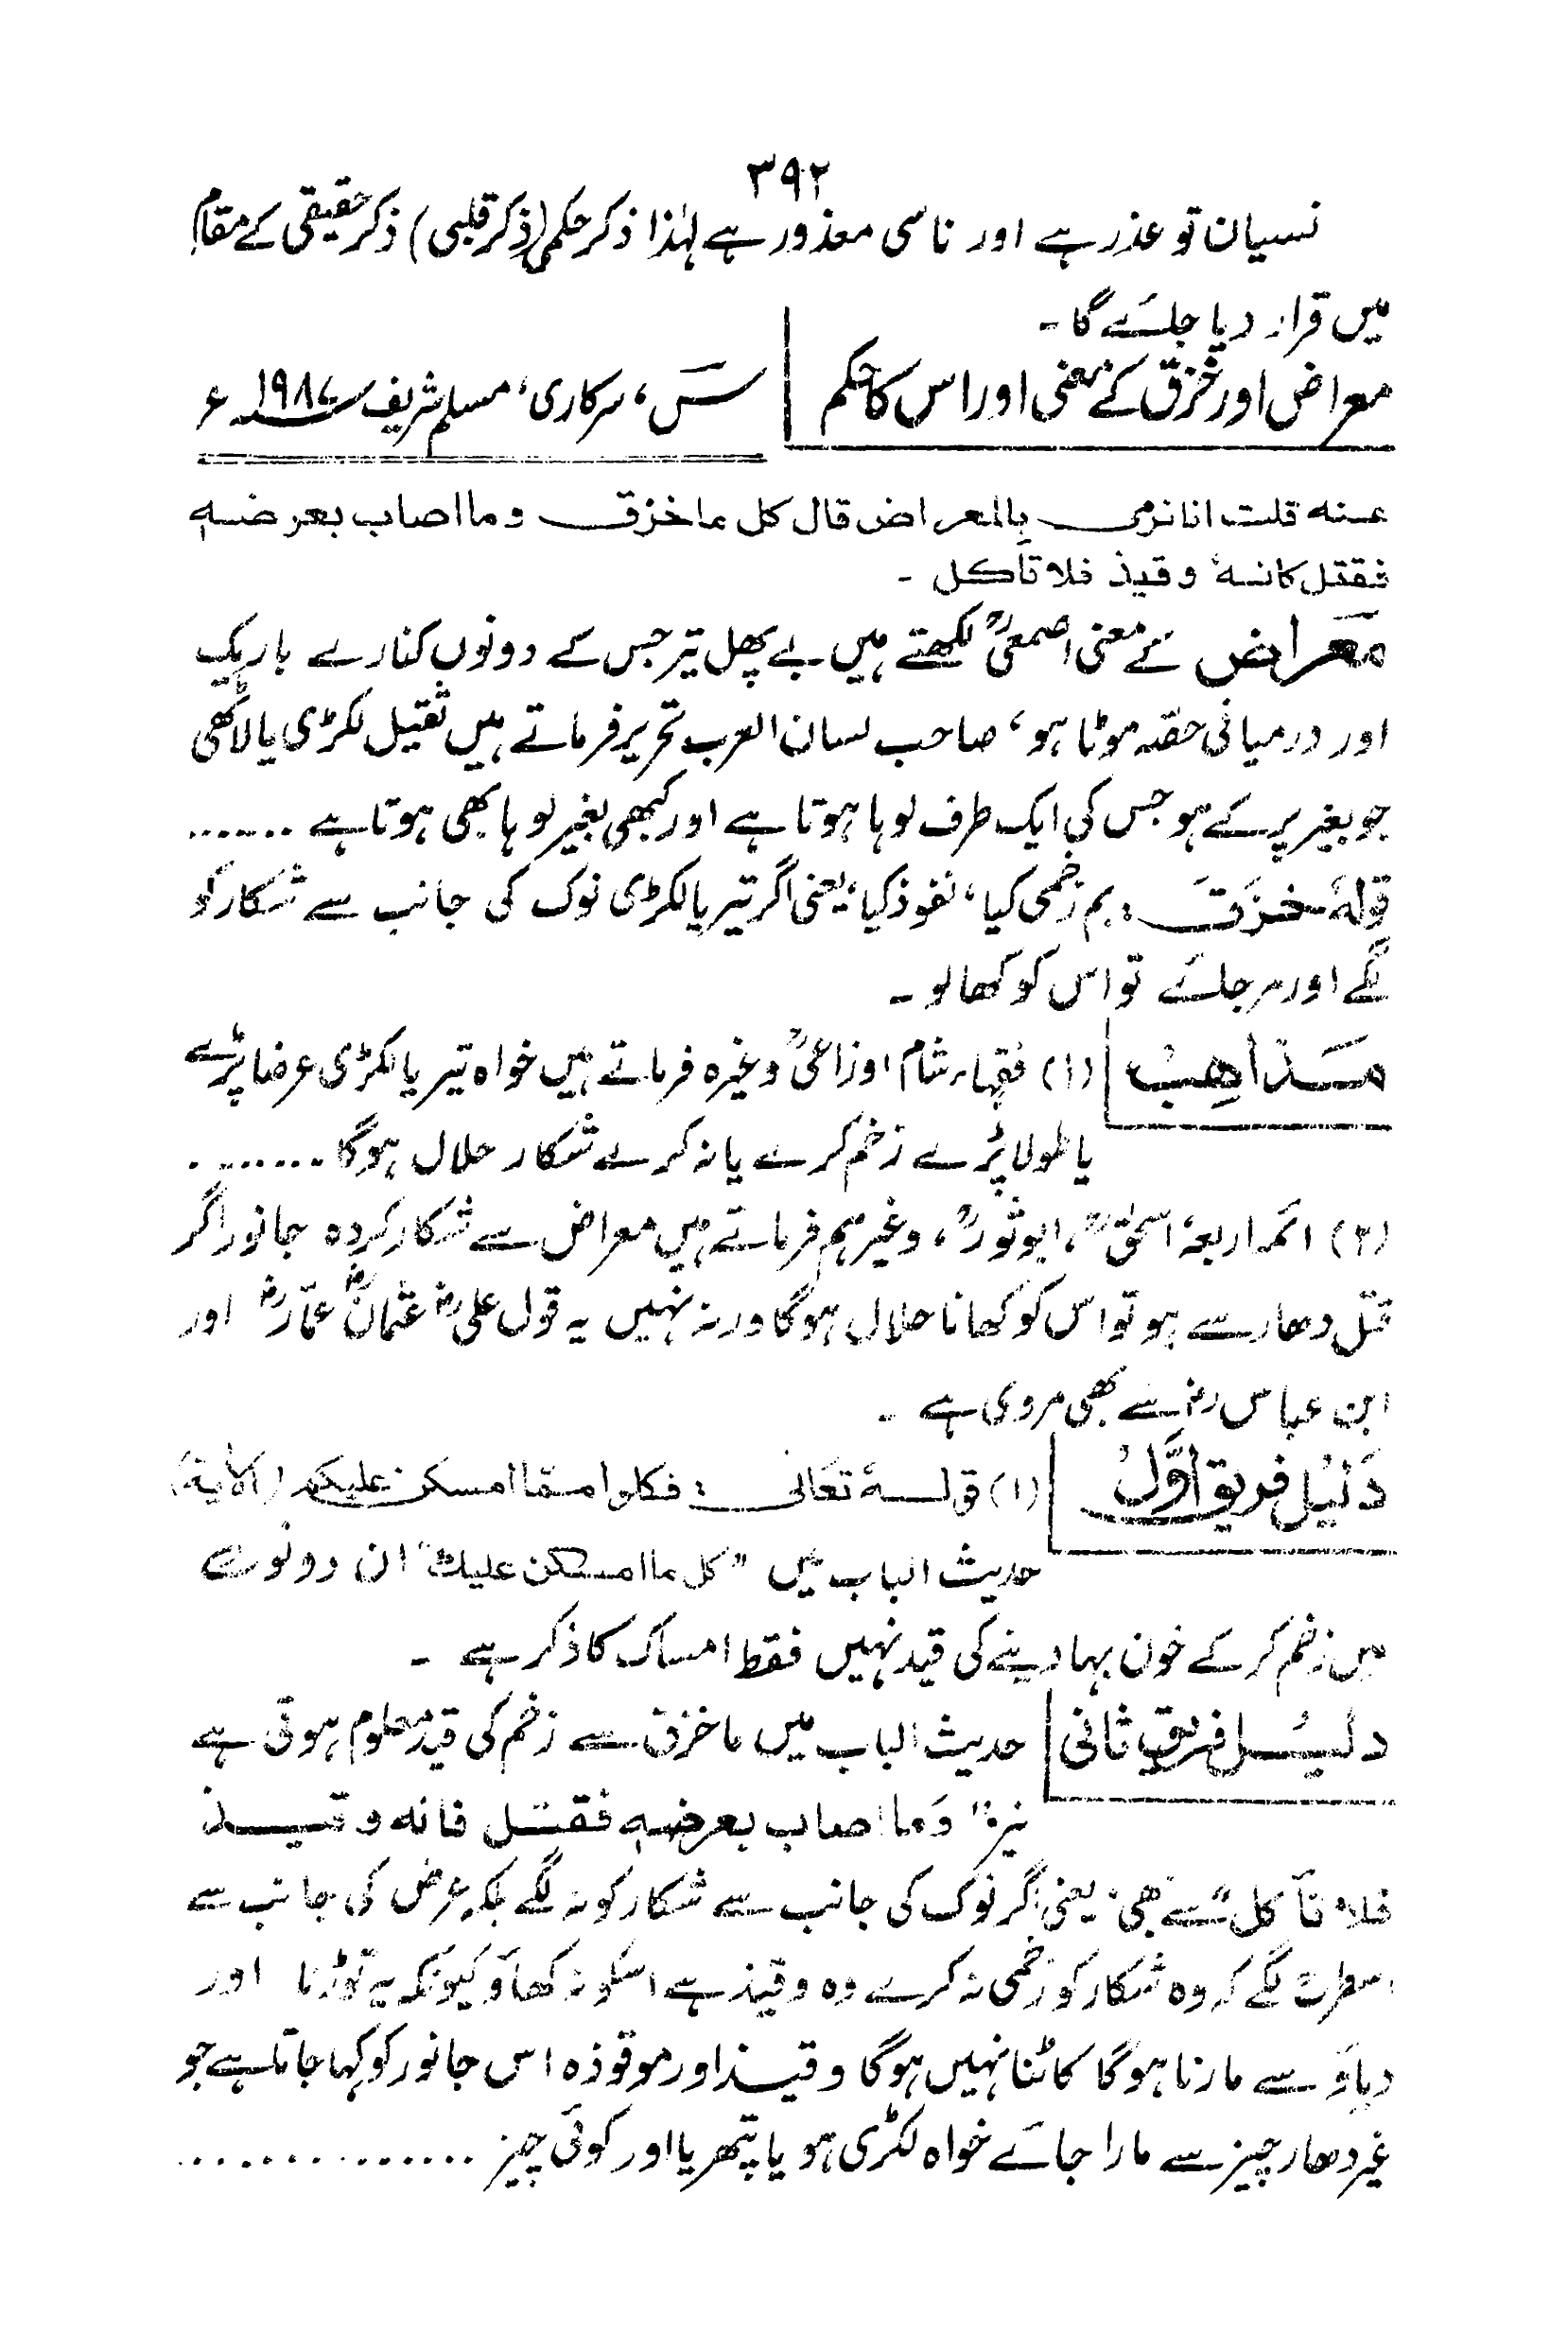 ۳۹۲
نسیان تو عذر ہے اور ناسی معذور ہے لہٰذا ذکر حکمی (ذکر قلبی) ذکر حقیقی کے مقام
میں قرار دیا جائے گا۔
معراض اور خزق کے معنی اور اس کا حکم | سٓ، سرکاری، مسلم شریف ؁۱۹۸۷ء
عنہ قلت انا نرمی بالمعراض قال کل ما خزق وما اصاب بعرضہٖ
فقتل کانہٗ وقیذ فلا تأکل ۔
مَعراض کے معنی اصمعیؒ لکھتے ہیں بے پھل تیر جس کے دونوں کنارے باریک
اور درمیانی حصّہ موٹا ہو، صاحب لسان العرب تحریر فرماتے ہیں ثقیل لکڑی یا لاٹھی
جو بغیر پر کے ہو جس کی ایک طرف لوہا ہوتا ہے اور کبھی بغیر لوہا بھی ہوتا ہے .......
قولہٗ خزَقَ : بم زخمی کیا، نفوذ کیا، یعنی اگر تیر یا لکڑی نوک کی جانب سے شکار کو
لگے اور مر جائے تو اس کو کھا لو ۔
مَذَاھِبْ | (۱) فقہاء شام اوزاعیؒ وغیرہ فرماتے ہیں خواہ تیر یا لکڑی عرضا پڑے
یا طولا پڑے زخم کرے یا نہ کرے شکار حلال ہوگا ........
(۲) ائمہ اربعہ، اسحٰقؒ، ابوثورؒ، وغیرہم فرماتے ہیں معراض سے شکار کردہ جانور اگر
قتل دھار سے ہو تو اس کو کھانا حلال ہوگا ورنہ نہیں یہ قول علیؓ عثمانؓ عمّارؓ اور
ابن عباس رض سے بھی مروی ہے ۔
دَلیْل فریق اوَّلْ | (۱) قولہٗ تعَالیٰ : فکلوا ممّا امسکن علیکم (الآیۃ)
حدیث الباب میں "کل ما امسکن علیک" ان دونوں سے
میں زخم کر کے خون بہا دینے کی قید نہیں فقط امساک کا ذکر ہے ۔
دلیْل فریق ثانی | حدیث الباب میں ما خزق سے زخم کی قید معلوم ہوتی ہے
نیز "وَما اصاب بعرضہٖ فقتل فانہ وقیذ
فلا تأکل" سے بھی، یعنی اگر نوک کی جانب سے شکار کو نہ لگے بلکہ عرض کی جانب سے
اسطرح لگے کہ وہ شکار کو زخمی نہ کرے وہ وقیذ ہے اسکو نہ کھاؤ کیونکہ یہ توڑنا اور
دباؤ سے مارنا ہوگا کاٹنا نہیں ہوگا وقیذ اور موقوذہ اس جانور کو کہا جاتا ہے جو
غیر دھار چیز سے مارا جائے خواہ لکڑی ہو یا پتھر یا اور کوئی چیز ..............